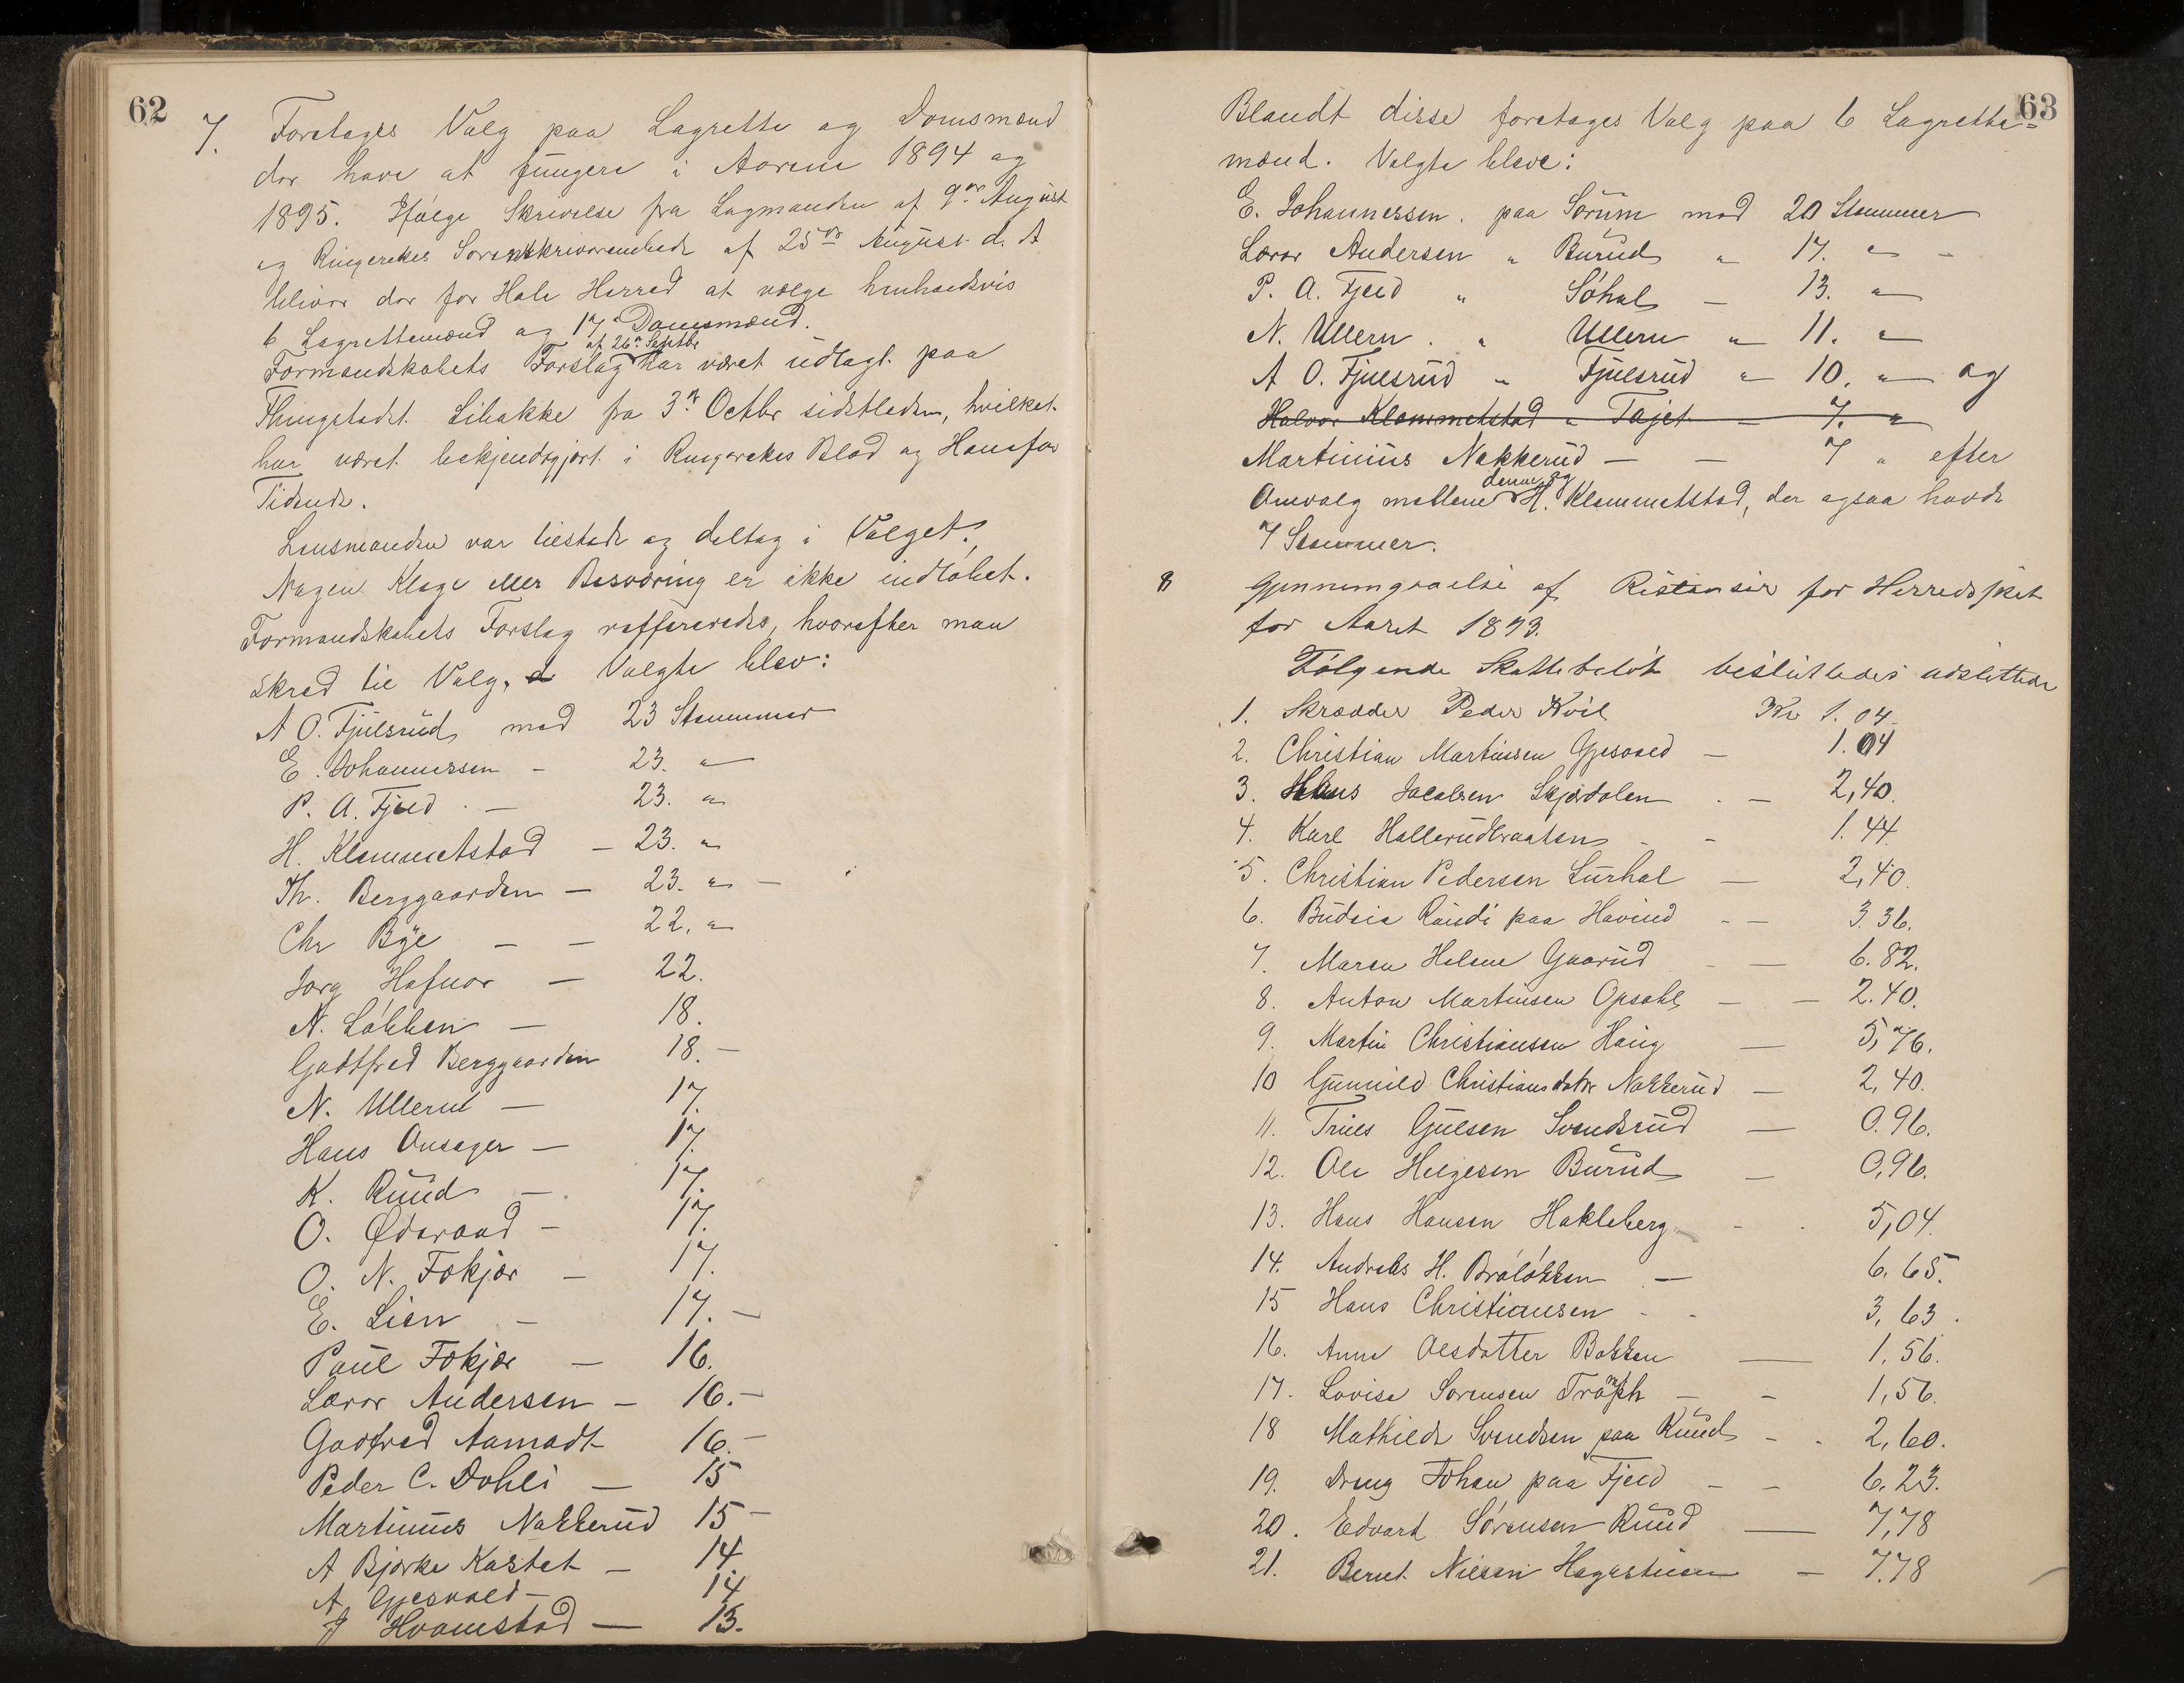 62
7. Foretages Valg paa Lagrette og Domsmænd
der have at fungere i Aarene 1894 og
1895. Ifølge Skrivelse fra Lagmanden af 9de August
og Ringerikes Sorenskriverembede af 25de August d. A
bliver der for Hole Herred at vælge henholdsvis
6 Lagrettemænd og 17 Domsmænd.
Formandskabets Forslag af 26de Septbr har været udlagt paa
Thingstedet Libakke fra 3die Octbr sidstleden, hvilket
har været bekjendtgjort i Ringerikes Blad og Hønefos
Tidende.
Lensmanden var tilstede og deltog i Valget.
Nogen Klage eller Besværing er ikke indløbet.
Formandskabets Forslag reffereredes, hvorefter man
skred til Valg. Valgte blev:
A O. Fjulsrud med 23 Stemmer
E. Johannessen - 23. "
P. A. Fjeld - 23. "
H. Klemmetstad - 23. "
Th. Berggaarden - 23. " -
Chr Bye - - 22. "
Jørg Hafnor - 22.
N. Løbben - 18.
Godtfred Berggaarden 18. -
N. Ullern - 17.
Hans Onsager - 17.
K. Ruud - 17.
O. Ødevaad - 17.
O. N. Fekjær - 17.
E. Lien - 17. -
Paul Fekjær - 16.
Lærer Andersen - 16. -
Godfred Aamodt 16. -
Peder C. Dohli - 15
Martinius Nakkerud 15 -
A Bjørke Kastet - 14.
A. Gjesvold - 14
J Hvamstad - 13.
63
Blandt disse foretages Valg paa 6 Lagrette=
mænd. Valgte bleve:
E. Johannessen. paa Sørum med 20 Stemmer
Lærer Andersen " Burud " 17. " -
P. A. Fjeld " Søhol - 13. "
N. Ullern. " Ullern " 11. "
A O. Fjulsrud " Fjulsrud " 10. " og
Halvor Klemmetstad " Tajet - 7. "
Martinius Nakkerud - - 7 " efter
Omvalg mellem denne og H. Klemmetstad, der ogsaa havde
7 Stemmer.
8 Gjennemgaaelse af Restanser for Herredsskat
for Aaret 1893.
Følgende Skattebeløb besluttedes udslettede
1. Skrædder Peder Hvil Kr 1.04
2. Christian Martinsen Gjesvold - 1.04
3. Hans Jacobsen Skjærdalen - 2,40.
4. Karl Hollerudbraaten - - 1.44.
5. Christian Pedersen Lurhol - 2,40.
6. Budeie Randi paa Havind - - 3.36.
7. Maren Helene Gaarud - - 6.82.
8. Anton Martinsen Opsahl - - 2.40.
9. Martin Christiansen Haug - 5,76.
10 Gunnild Christiansdatter Nakkerud - 2,40.
11. Truls Gulsen Svendsrud - 0.96.
12. Ole Helgesen Burud - 0,96.
13. Hans Hansen Hakleberg - - 5,04.
14. Andreas H. Bråløkken - 6.65.
15 Hans Christiansen - - 3,63.
16. Anne Olsdatter Bakken - 1,56.
17. Lovise Sørensen - - 1,56.
18 Mathilde Svendsen paa Ruud - - 2,60.
19. Dreng Johan paa Fjeld - - 6.23.
20. Edvard Sørensen Ruud - 7,78
21. Bernt Nilsen - 7.78